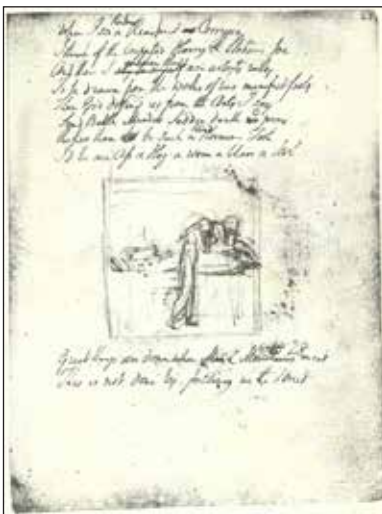 When I see a Rubens Rembrant Correggio
I think of the Crippled Harry & Slobbering Joe
And then I question thus are artists rules
To be drawn from the works of two manifest fools
Then God defend us from the Arts I say
Send Battle Murder Sudden Death O pray
Rather than be such a Human Fool
I'd be an Ass a Hog a Worm a Chair a Stool
Great things are done when Men & Mountains meet
This is not done by Jostling in the Street